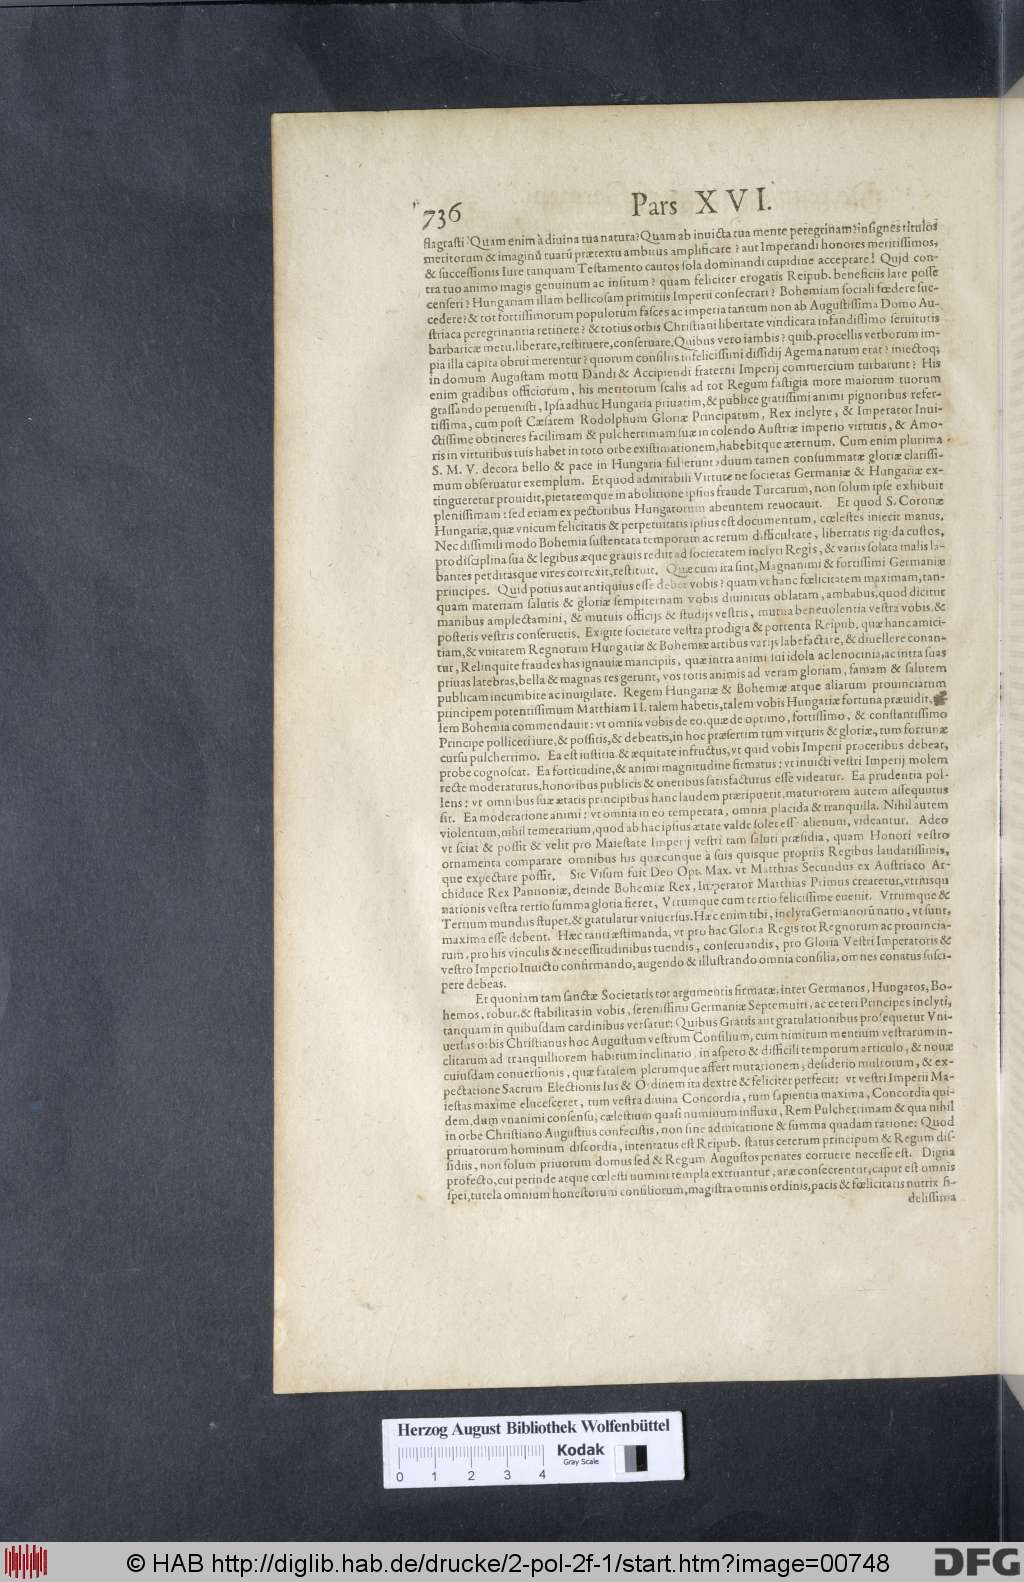 736 Pars XVI.
flagrasti? Quam enim à diuina tua natura? Quam ab inuicta tua mente peregrinam? insignes titulos
meritorum & imaginū tuarū prætextu ambitus amplificare? aut Imperandi honores meritissimos,
& successionis Iure tanquam Testamento cautos sola dominandi cupidine acceptare! Quid con-
tra tuo animo magis genuinum ac insitum? quam feliciter erogatis Reipub. beneficiis late posse
censeri? Hungariam illam bellicosam primitiis Imperii consecrari? Bohemiam sociali fœdere suc-
cedere? & tot fortissimorum populorum fasces ac imperia tantum non ab Augustissima Domo Au-
striaca peregrinantia retinere? & totius orbis Christiani libertate vindicata infandissimo seruitutis
barbaricæ metu, liberare, restituere, conseruare. Quibus vero iambis? quib. procellis verborum im-
pia illa capita obrui merentur? quorum consiliis infelicissimi dissidij Agema natum erat? iniectoq;
in domum Augustam motu Dandi & Accipiendi fraterni Imperij commercium turbarunt? His
enim gradibus officiorum, his meritorum scalis ad tot Regum fastigia more maiorum tuorum
grassando peruenisti, Ipsa adhuc Hungaria priuatim, & publice gratissimi animi pignoribus refer-
tissima, cum post Cæsarem Rodolphum Gloriæ Principatum, Rex inclyte, & Imperator Inui-
ctissime obtineres facilimam & pulcherrimam suæ in colendo Austriæ imperio virtutis, & Amo-
ris in virtutibus tuis habet in toto orbe existimationem, habebitque æternum. Cum enim plurima
S. M. V. decora bello & pace in Hungaria fulserunt, duum tamen consummatæ gloriæ clarissi-
mum obseruatur exemplum. Et quod admirabili Virtute ne societas Germaniæ & Hungariæ ex-
tingueretur prouidit, pietatemque in abolitione ipsius fraude Turcarum, non solum ipse exhibuit
plenissimam: sed etiam ex pectoribus Hungarorum abeuntem reuocauit. Et quod S. Coronæ
Hungariæ, quæ vnicum felicitatis & perpetuitatis ipsius est documentum, cœlestes iniecit manus.
Nec dissimili modo Bohemia sustentata temporum ac rerum difficultate, libertatis rigida custos,
pro disciplina sua & legibus æque grauis rediit ad societatem inclyti Regis, & variis solata malis la-
bantes perditasque vires correxit, restituit. Quæ cum ita sint, Magnanimi & fortissimi Germaniæ
principes. Quid potius aut antiquius esse debet vobis? quam vt hanc fœlicitatem maximam, tan-
quam materiam salutis & gloriæ sempiternam vobis diuinitus oblatam, ambabus, quod dicitur
manibus amplectamini, & mutuis officijs & studijs vestris, mutua beneuolentia vestra vobis, &
posteris vestris conseruetis. Exigite societate vestra prodigia & portenta Reipub. quæ hanc amici-
tiam, & vnitatem Regnorum Hungariæ & Bohemiæ artibus varijs labefactare, & diuellere conan-
tur, Relinquite fraudes has ignauiæ mancipiis, quæ intra animi sui idola ac lenocinia, ac intra suas
priuas latebras, bella & magnas res gerunt, vos totis animis ad veram gloriam, famam & salutem
publicam incumbite ac inuigilate. Regem Hungariæ & Bohemiæ atque aliarum prouinciarum
principem potentissimum Matthiam II. talem habetis, talem vobis Hungariæ fortuna præuidit,
lem Bohemia commendauit: vt omnia vobis de eo, quæ de optimo, fortissimo, & constantissimo
Principe polliceri iure, & possitis, & debeatis, in hoc præsertim tum virtutis & gloriæ, tum fortunæ
cursu pulcherrimo. Ea est iustitia & æquitate infructus, vt quid vobis Imperii proceribus debeat,
probe cognoscat. Ea fortitudine, & animi magnitudine firmatus: vt inuicti vestri Imperij molem
recte moderaturus, honoribus publicis & oneribus satisfacturus esse videatur. Ea prudentia pol-
lens: vt omnibus suæ ætatis principibus hanc laudem præripuerit, maturiorem autem assequutus
sit. Ea moderatione animi: vt omnia in eo temperata, omnia placida & tranquilla. Nihil autem
violentum, nihil temerarium, quod ab hac ipsius ætate valde solet esse alienum, videantur. Adeo
vt sciat & possit & velit pro Maiestate Imperij vestri tam saluti præsidia, quam Honori vestro
ornamenta comparare omnibus his quæcunque à suis quisque propriis Regibus laudatissimis,
que expectare possit. Sic Visum fuit Deo Opt. Max. vt Matthias Secundus ex Austriaco Ar-
chiduce Rex Pannoniæ, deinde Bohemiæ Rex, Imperator Matthias Primus crearetur, vtriusqu
nationis vestra tertio summa gloria fieret, Vtrumque cum tertio felicissime euenit. Vtrumque &
Tertium mundus stupet, & gratulatur vniuersus. Hæc enim tibi, inclyta Germanorū natio, vt sunt,
maxima esse debent. Hæc tanti æstimanda, vt pro hac Gloria Regis tot Regnorum ac prouincia-
rum, pro his vinculis & necessitudinibus tuendis, conseruandis, pro Gloria Vestri Imperatoris &
vestro Imperio Inuicto confirmando, augendo & illustrando omnia consilia, omnes conatus susci-
pere debeas.
Et quoniam tam sanctæ Societatis tot argumentis firmatæ, inter Germanos, Hungaros, Bo-
hemos, robur, & stabilitas in vobis, serenissimi Germaniæ Septemuiri, ac ceteri Principes inclyti,
tanquam in quibusdam cardinibus versatur: Quibus Gratiis aut gratulationibus prosequetur Vni-
uersus orbis Christianus hoc Augustum vestrum Consilium, cum nimirum mentium vestrarum in-
clitarum ad tranquilliorem habitum inclinatio, in aspero & difficili temporum articulo, & nouæ
cuiusdam conuersionis, quæ fatalem plerumque affert mutationem, desiderio multorum, & ex-
pectatione Sacrum Electionis Ius & Ordinem ita dextre & feliciter perfecit: vt vestri Imperii Ma-
iestas maxime elucesceret, tum vestra diuina Concordia, tum sapientia maxima, Concordia qui-
dem, dum vnanimi consensu, cælestium quasi numinum influxu, Rem Pulcherrimam & qua nihil
in orbe Christiano Augustius confecistis, non sine admiratione & summa quadam ratione: Quod
priuatorum hominum discordia, intentatus est Reipub. status ceterum principum & Regum dis-
sidiis, non solum priuorum domus sed & Regum Augustos penates corruere necesse est. Digna
profecto, cui perinde atque cœlesti numini templa extruantur, aræ consecrentur, caput est omnis
spei, tutela omnium honestorum consiliorum, magistra omnis ordinis, pacis & fœlicitatis nutrix fi-
delissima
Herzog August Bibliothek Wolfenbüttel
Kodak
Gray Scale
0 1 2 3 4
© HAB http://diglib.hab.de/drucke/2-pol-2f-1/start.htm?image=00748
DFG